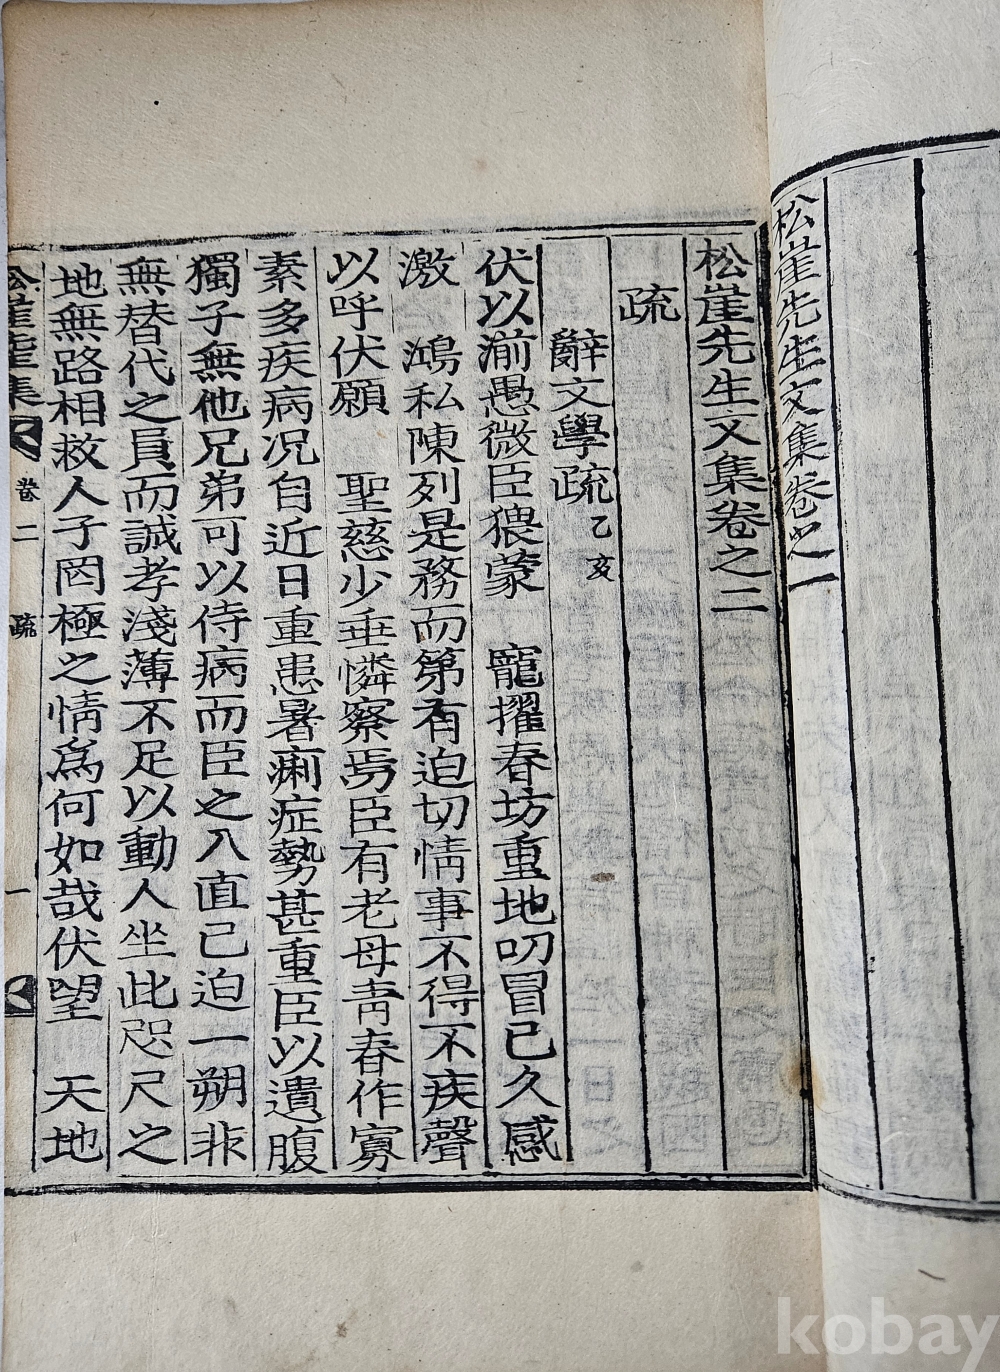 松崖先生文集卷之一
松崖先生文集卷之二
疏
辭文學疏 乙亥
伏以湔愚微臣猥蒙 寵擢春坊重地叨冒已久感
激 鴻私陳列是務而第有迫切情事不得不疾聲
以呼伏願 聖慈少垂憐察焉臣有老母靑春作寡
素多疾病况自近日重患暑痢症勢甚重臣以遺腹
獨子無他兄弟可以侍病而臣之入直已迫一朔非
無替代之員而誠孝淺薄不足以動人坐此咫尺之
地無路相救人子罔極之情爲何如哉伏望 天地
松崖集 卷二 疏 一
kobay